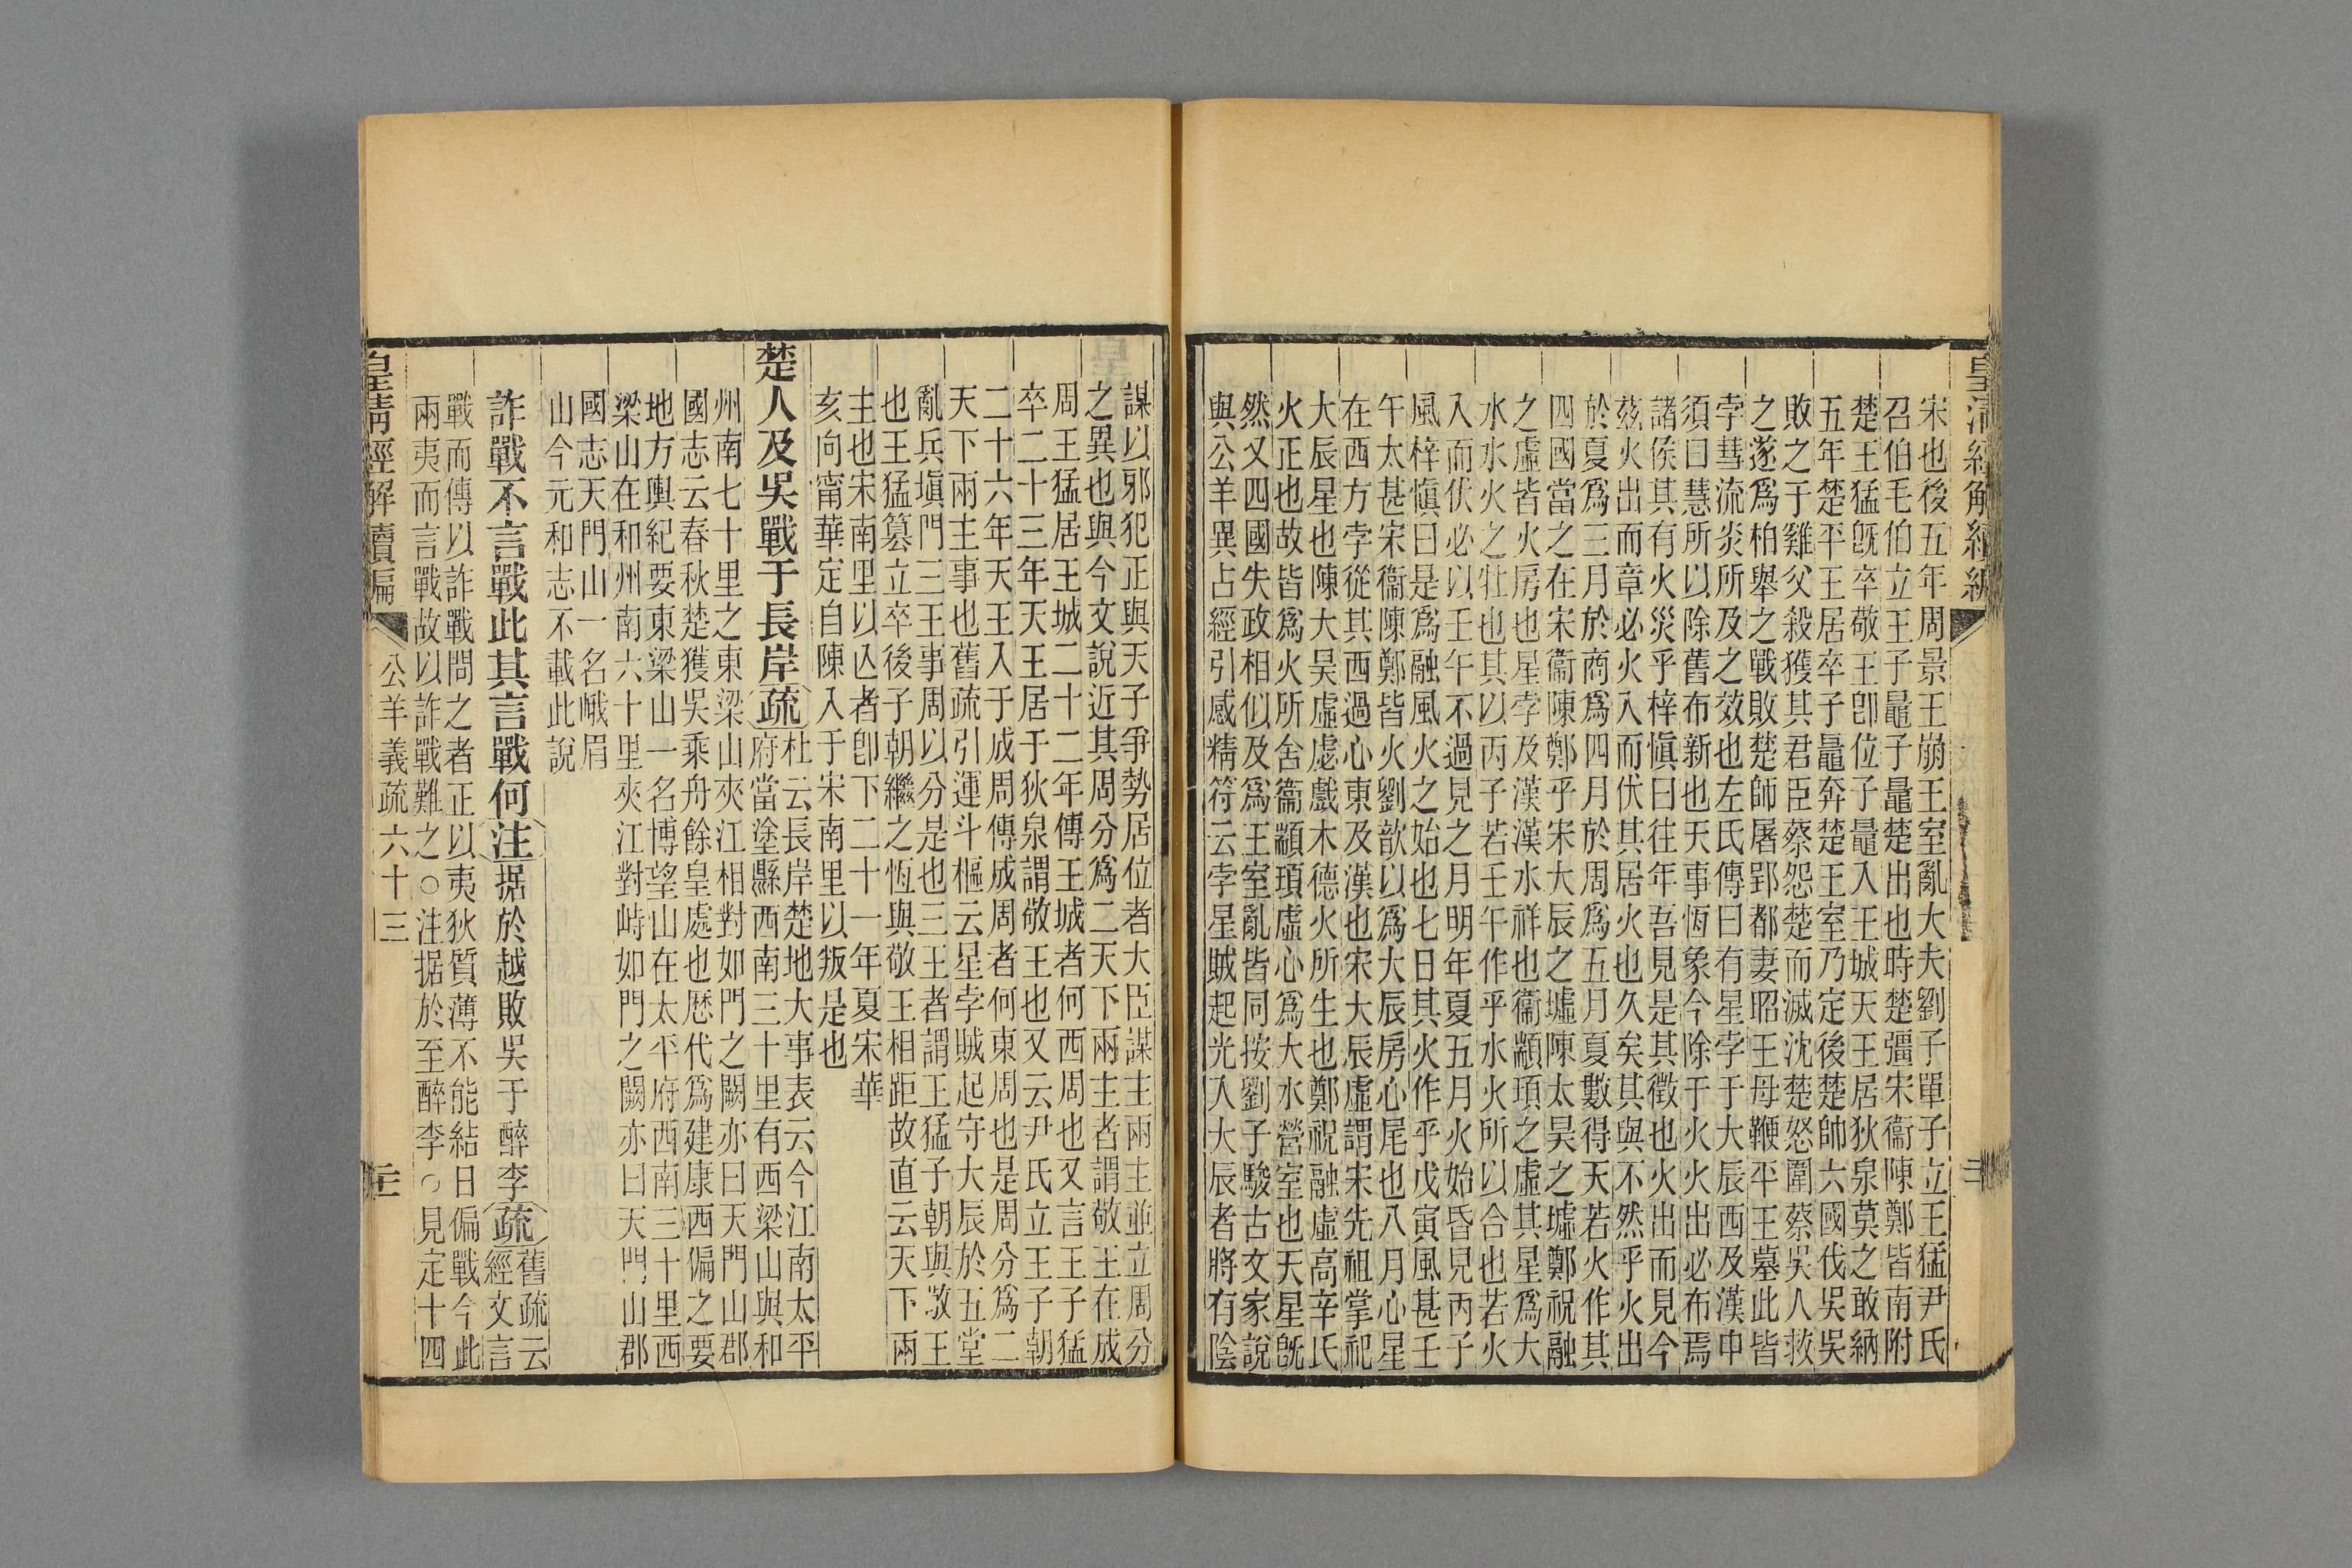 皇清經解續編
宋也後五年周景王崩王室亂大夫劉子單子立王猛尹氏
召伯毛伯立王子鼂子鼂楚出也時楚彊宋衞陳鄭皆南附
楚王猛旣卒敬王卽位子鼂入王城天王居狄泉莫之敢納
五年楚平王居卒子鼂奔楚王室乃定後楚帥六國伐吳吳
敗之于雞父殺獲其君臣蔡怨楚而滅沈楚怒圍蔡吳人救
之遂爲柏舉之戰敗楚師屠郢都妻昭王母鞭平王墓此皆
孛彗流炎所及之效也左氏傳曰有星孛于大辰西及漢申
須曰彗所以除舊布新也天事恆象今除于火火出必布焉
諸侯其有火災乎梓愼曰往年吾見是其徵也火出而見今
茲火出而章必火入而伏其居火也久矣其與不然乎火出
於夏爲三月於商爲四月於周爲五月夏數得天若火作其
四國當之在宋衞陳鄭乎宋大辰之墟陳太昊之墟鄭祝融
之虛皆火房也星孛及漢漢水祥也衞顓頊之虛其星爲大
水水火之牡也其以丙子若壬午作乎水火所以合也若火
入而伏必以壬午不過見之月明年夏五月火始昏見丙子
風梓愼曰是爲融風火之始也七日其火作乎戊寅風甚壬
午太甚宋衞陳鄭皆火劉歆以爲大辰房心尾也八月心星
在西方孛從其西過心東及漢也宋大辰虛謂宋先祖掌祀
大辰星也陳大昊虛虙戲木德火所生也鄭祝融虛高辛氏
火正也故皆爲火所舍衞顓頊虛心爲大水營室也天星旣
然又四國失政相似及爲王室亂皆同按劉子駿古文家說
與公羊異占經引感精符云孛星賊起光入大辰者將有陰
謀以邪犯正與天子爭勢居位者大臣謀主兩主並立周分
之異也與今文說近其周分爲二天下兩主者謂敬王在成
周王猛居王城二十二年傳王城者何西周也又言王子猛
卒二十三年天王居于狄泉謂敬王也又云尹氏立王子朝
二十六年天王入于成周傳成周者何東周也是周分爲二
天下兩主事也舊疏引運斗樞云星孛賊起守大辰於五堂
亂兵塡門三王事周以分是也三王者謂王猛子朝與敬王
也王猛篡立卒後子朝繼之恆與敬王相距故直云天下兩
主也宋南里以亾者卽下二十一年夏宋華
亥向甯華定自陳入于宋南里以叛是也
楚人及吳戰于長岸疏杜云長岸楚地大事表云今江南太平
府當塗縣西南三十里有西梁山與和
州南七十里之東梁山夾江相對如門之闕亦曰天門山郡
國志云春秋楚獲吳乘舟餘皇處也厯代爲建康西偏之要
地方輿紀要東梁山一名博望山在太平府西南三十里西
梁山在和州南六十里夾江對峙如門之闕亦曰天門山郡
國志天門山一名峨眉
山今元和志不載此說
詐戰不言戰此其言戰何注据於越敗吳于醉李疏舊疏云
經文言
戰而傳以詐戰問之者正以夷狄質薄不能結日偏戰今此
兩夷而言戰故以詐戰難之○注据於至醉李○見定十四
皇清經解續編
公羊義疏六十三